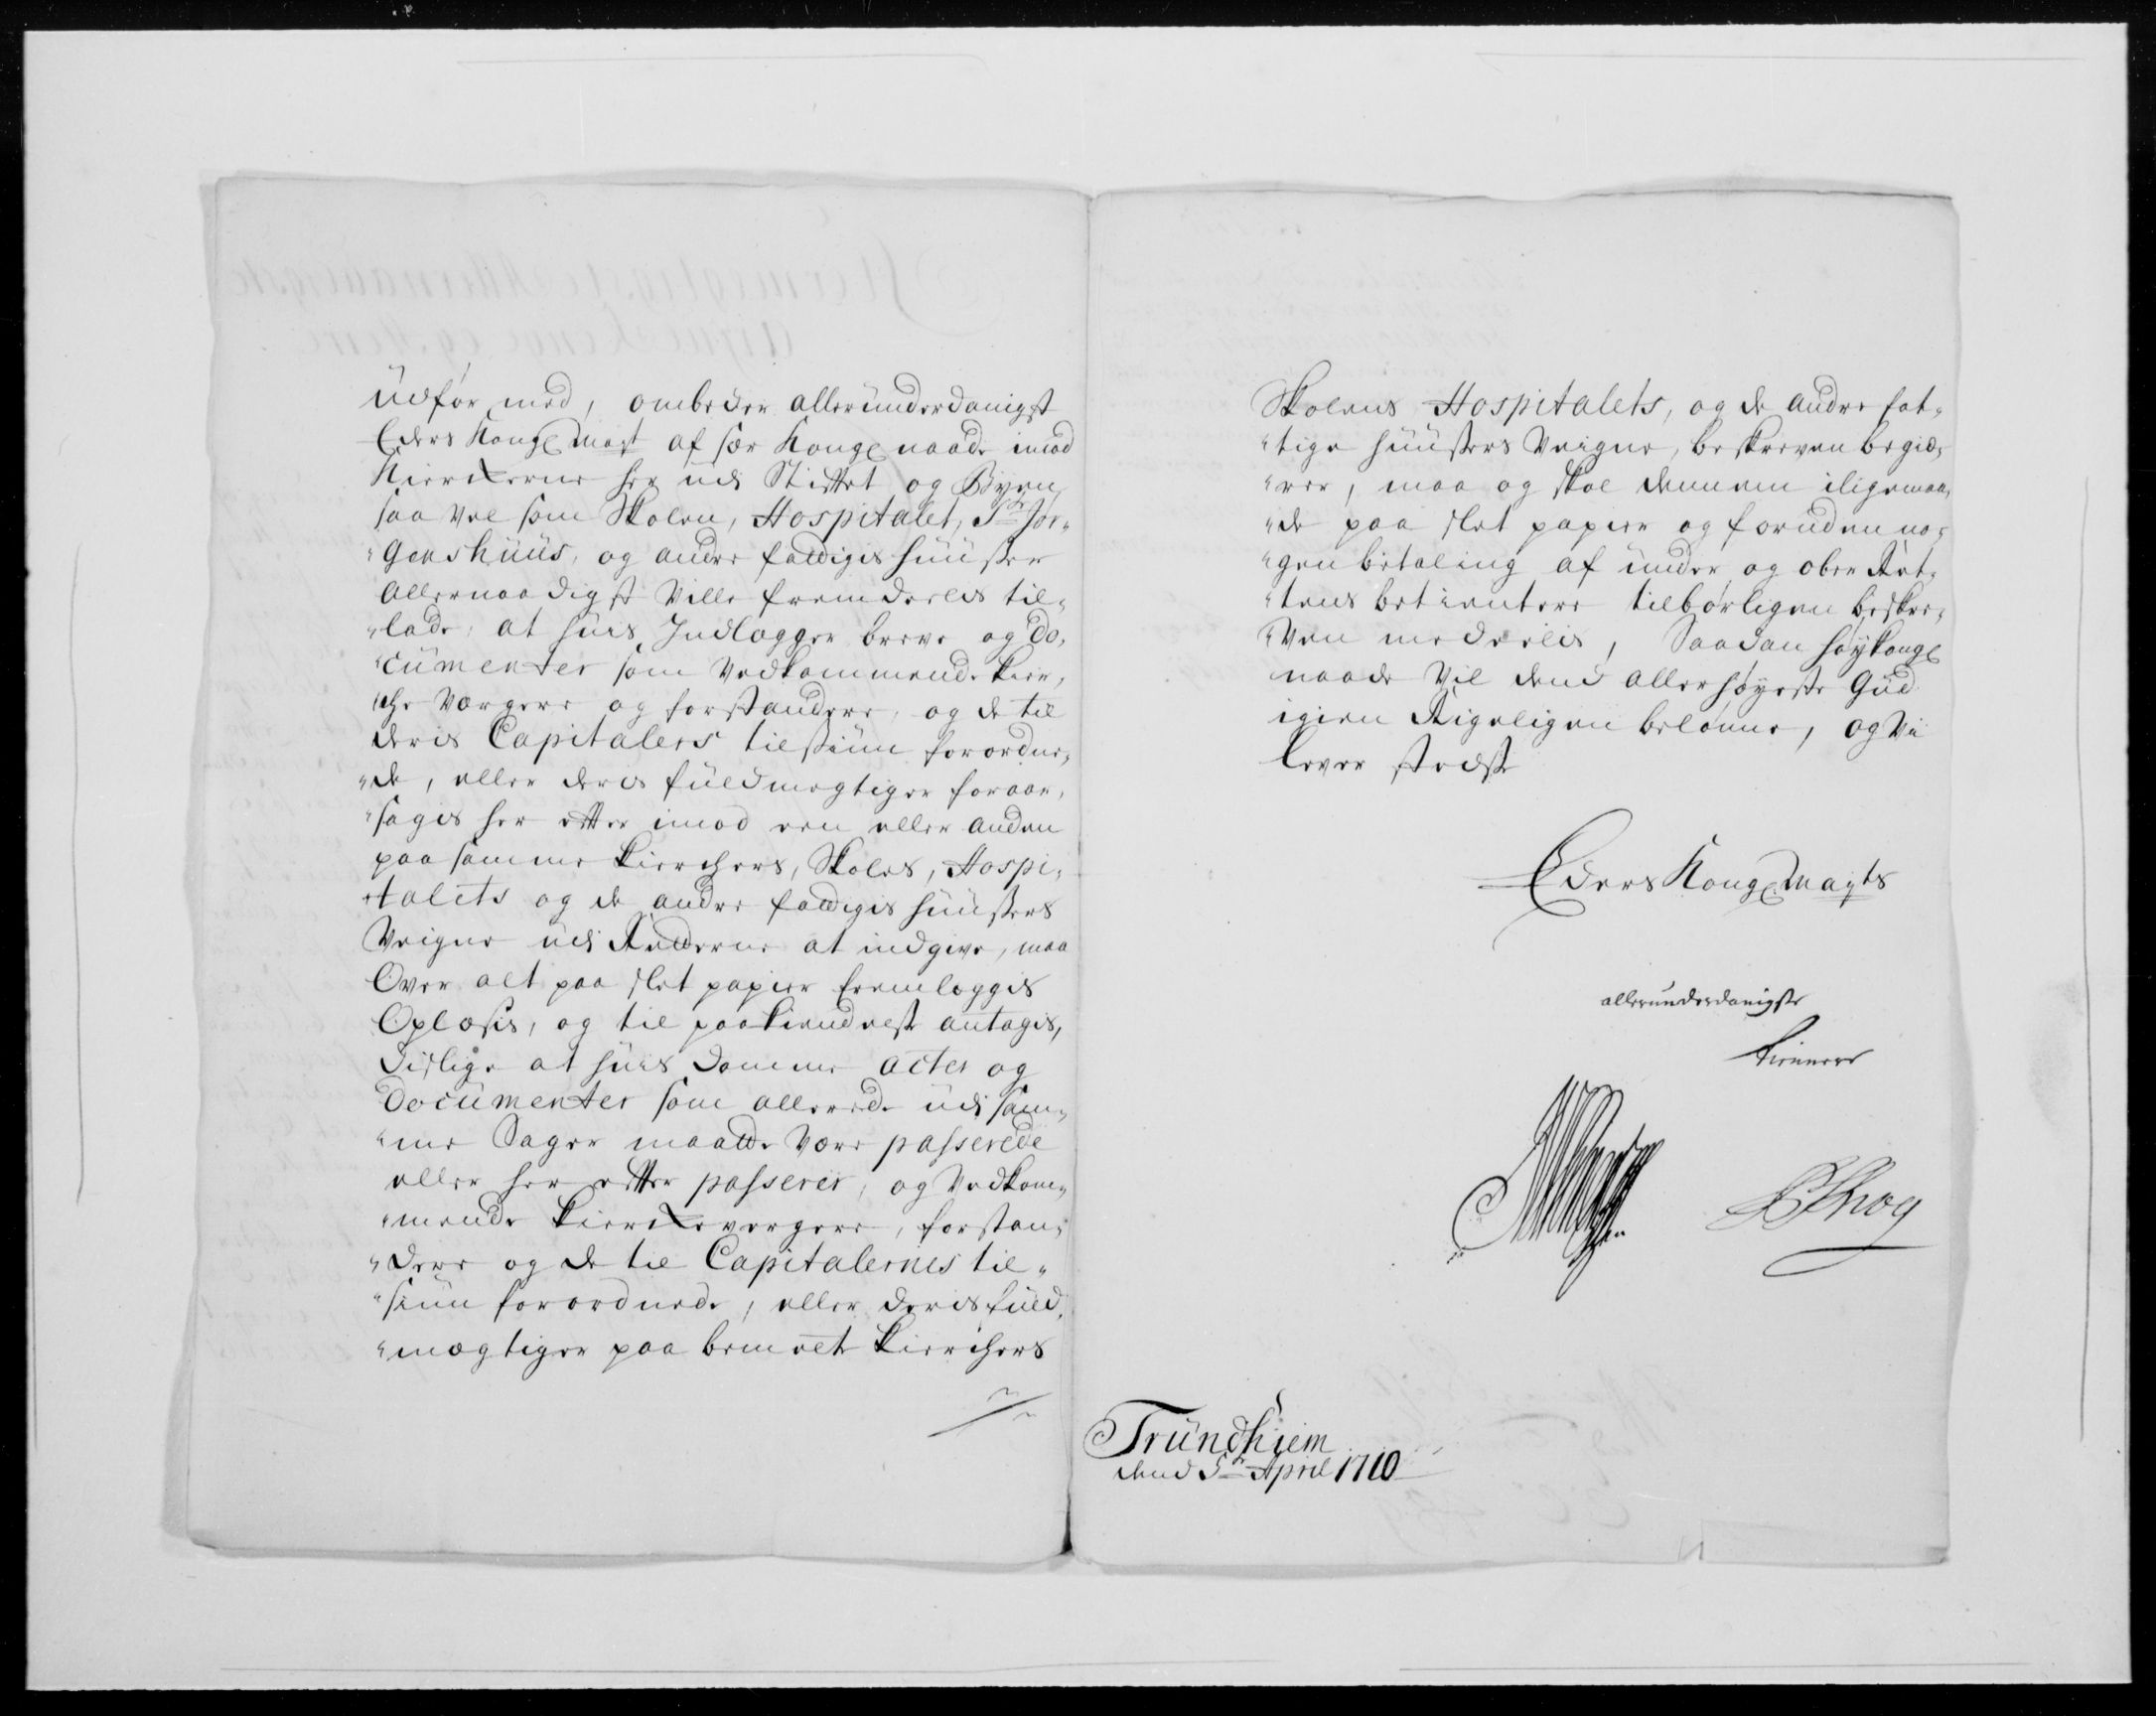 üdfør med, ombeder alleründerdanigst
Eders Kongl Mayst af sær Kongl naade imod
Kierckerne her üdi Stifftet og Byen,
saa vel som Skolen, Hospitalet, St Jør„
„genshüüs, og andre fattigis hüüser
allernaadigst ville fremdeelis til„
„lade, at hüis Indlægger breve og do„
„cümenter som vedkommende Kier„
„che værgere og forstandere, og de til
deris Capitalers tilsiün forordne„
„de, eller deris füldmegtiger foraar„
„sagis her effter imod een eller anden
paa samme Kierchers, Skoles, Hospi„
„talets og de andre fattigis hüüsers
Veigne üdi Retterne at indgive, maa
Over alt paa slet papiir fremleggis
Oplæsis, og til paakiendelse antagis,
disligo at hüis domme acter og
Documenter som allereede üdi sam„
„me Sager maatte være passerede
eller her effter passerer, og vedkom„
„mende Kierckeværgere, forstan„
„dere og de til Capitalernes til„
„siün forordnede, eller deris füld„
„mægtiger paa bemelte Kierchers
Skolens Hospitalets, og de andre fat„
„tige hüüsers Veigne, beskreven begiæ„
„rer, maa og skal dennem iligemaa„
„de paa slet papiir og foruden no„
„gen betaling af ünder og ober Ret„
„tens betientere tilbørligen beskre„
„ven meddeelis, Saadan høykongl
naade vil dend allerhøyeste Güd
igien Rigeligen belønne, og Vi
lever stedse
Eders Kongl Mayts
allerunderdanigste
tienere
Krog
Tründhiem
dend 5te April 1710